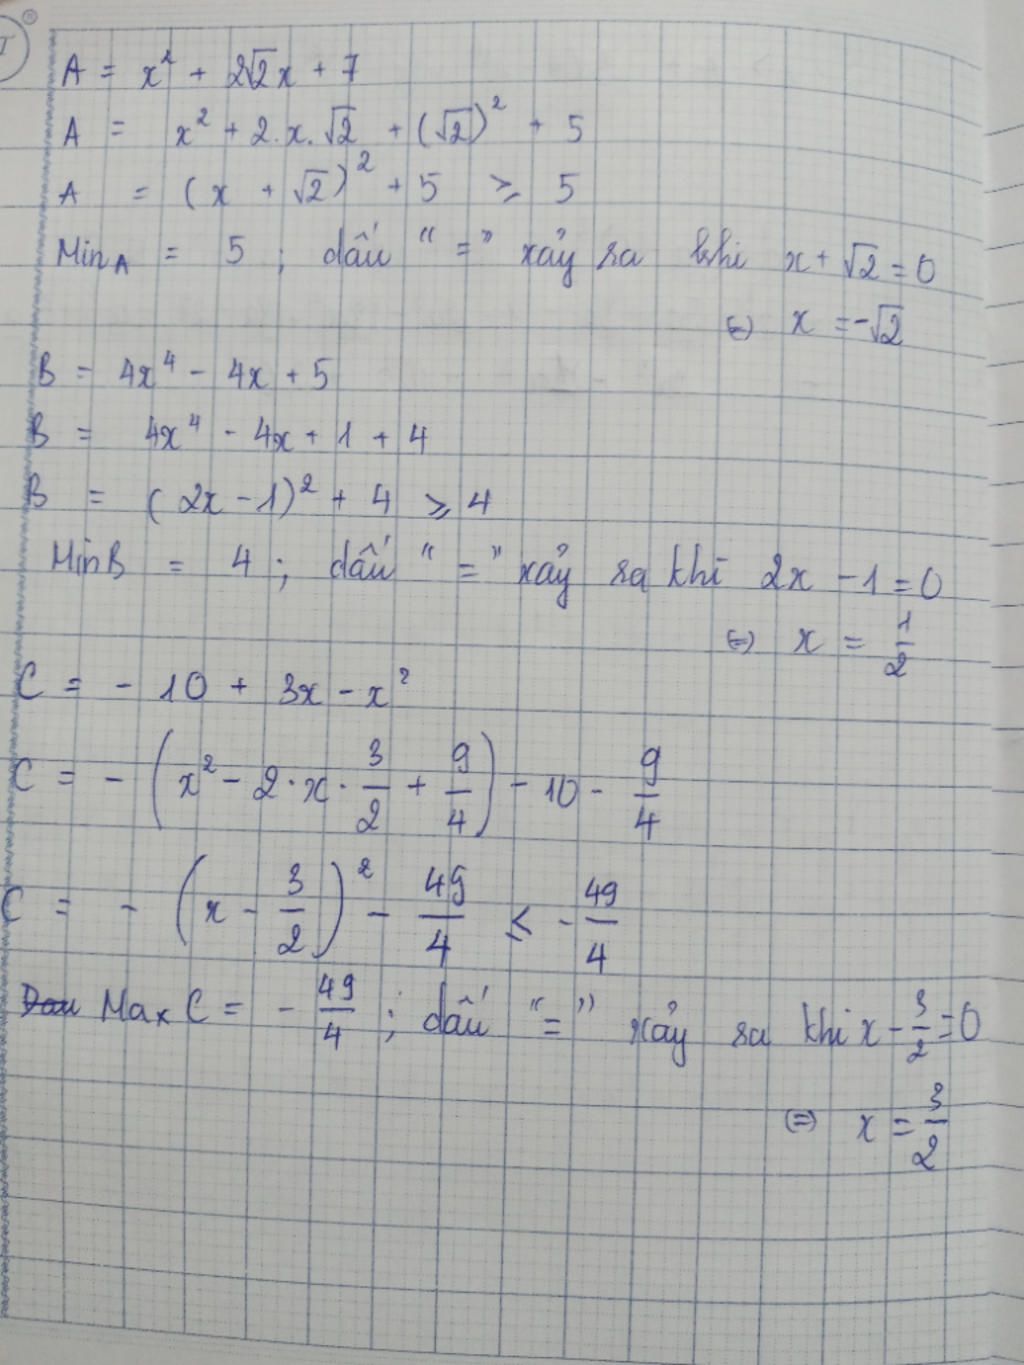 A = x² + 2√2x + 7
A = x² + 2.x.√2 + (√2)² + 5
A = (x + √2)² + 5 ⩾ 5
Min A = 5 ; dấu "=" xảy ra khi x + √2 = 0
⇔ x = -√2
B = 4x⁴ - 4x + 5
B = 4x⁴ - 4x + 1 + 4
B = (2x - 1)² + 4 ⩾ 4
Min B = 4 ; dấu "=" xảy ra khi 2x - 1 = 0
⇔ x = 1/2
C = - 10 + 3x - x²
C = - (x² - 2·x·3/2 + 9/4) - 10 - 9/4
C = - (x - 3/2)² - 49/4 ⩽ - 49/4
Dau Max C = - 49/4 ; dấu "=" xảy ra khi x - 3/2 = 0
⇔ x = 3/2